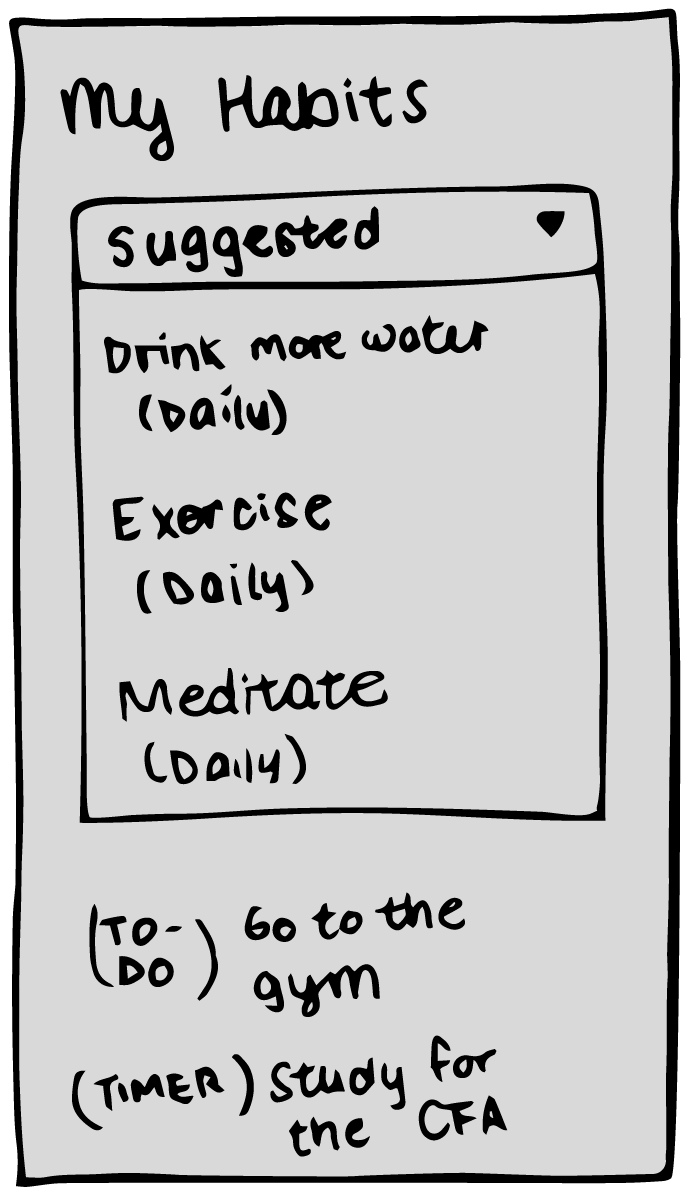 My Habits
Suggested
Drink more water
(Daily)
Exercise
(Daily)
Meditate
(Daily)
(TO-
DO) Go to the
gym
(TIMER) Study for
the CFA